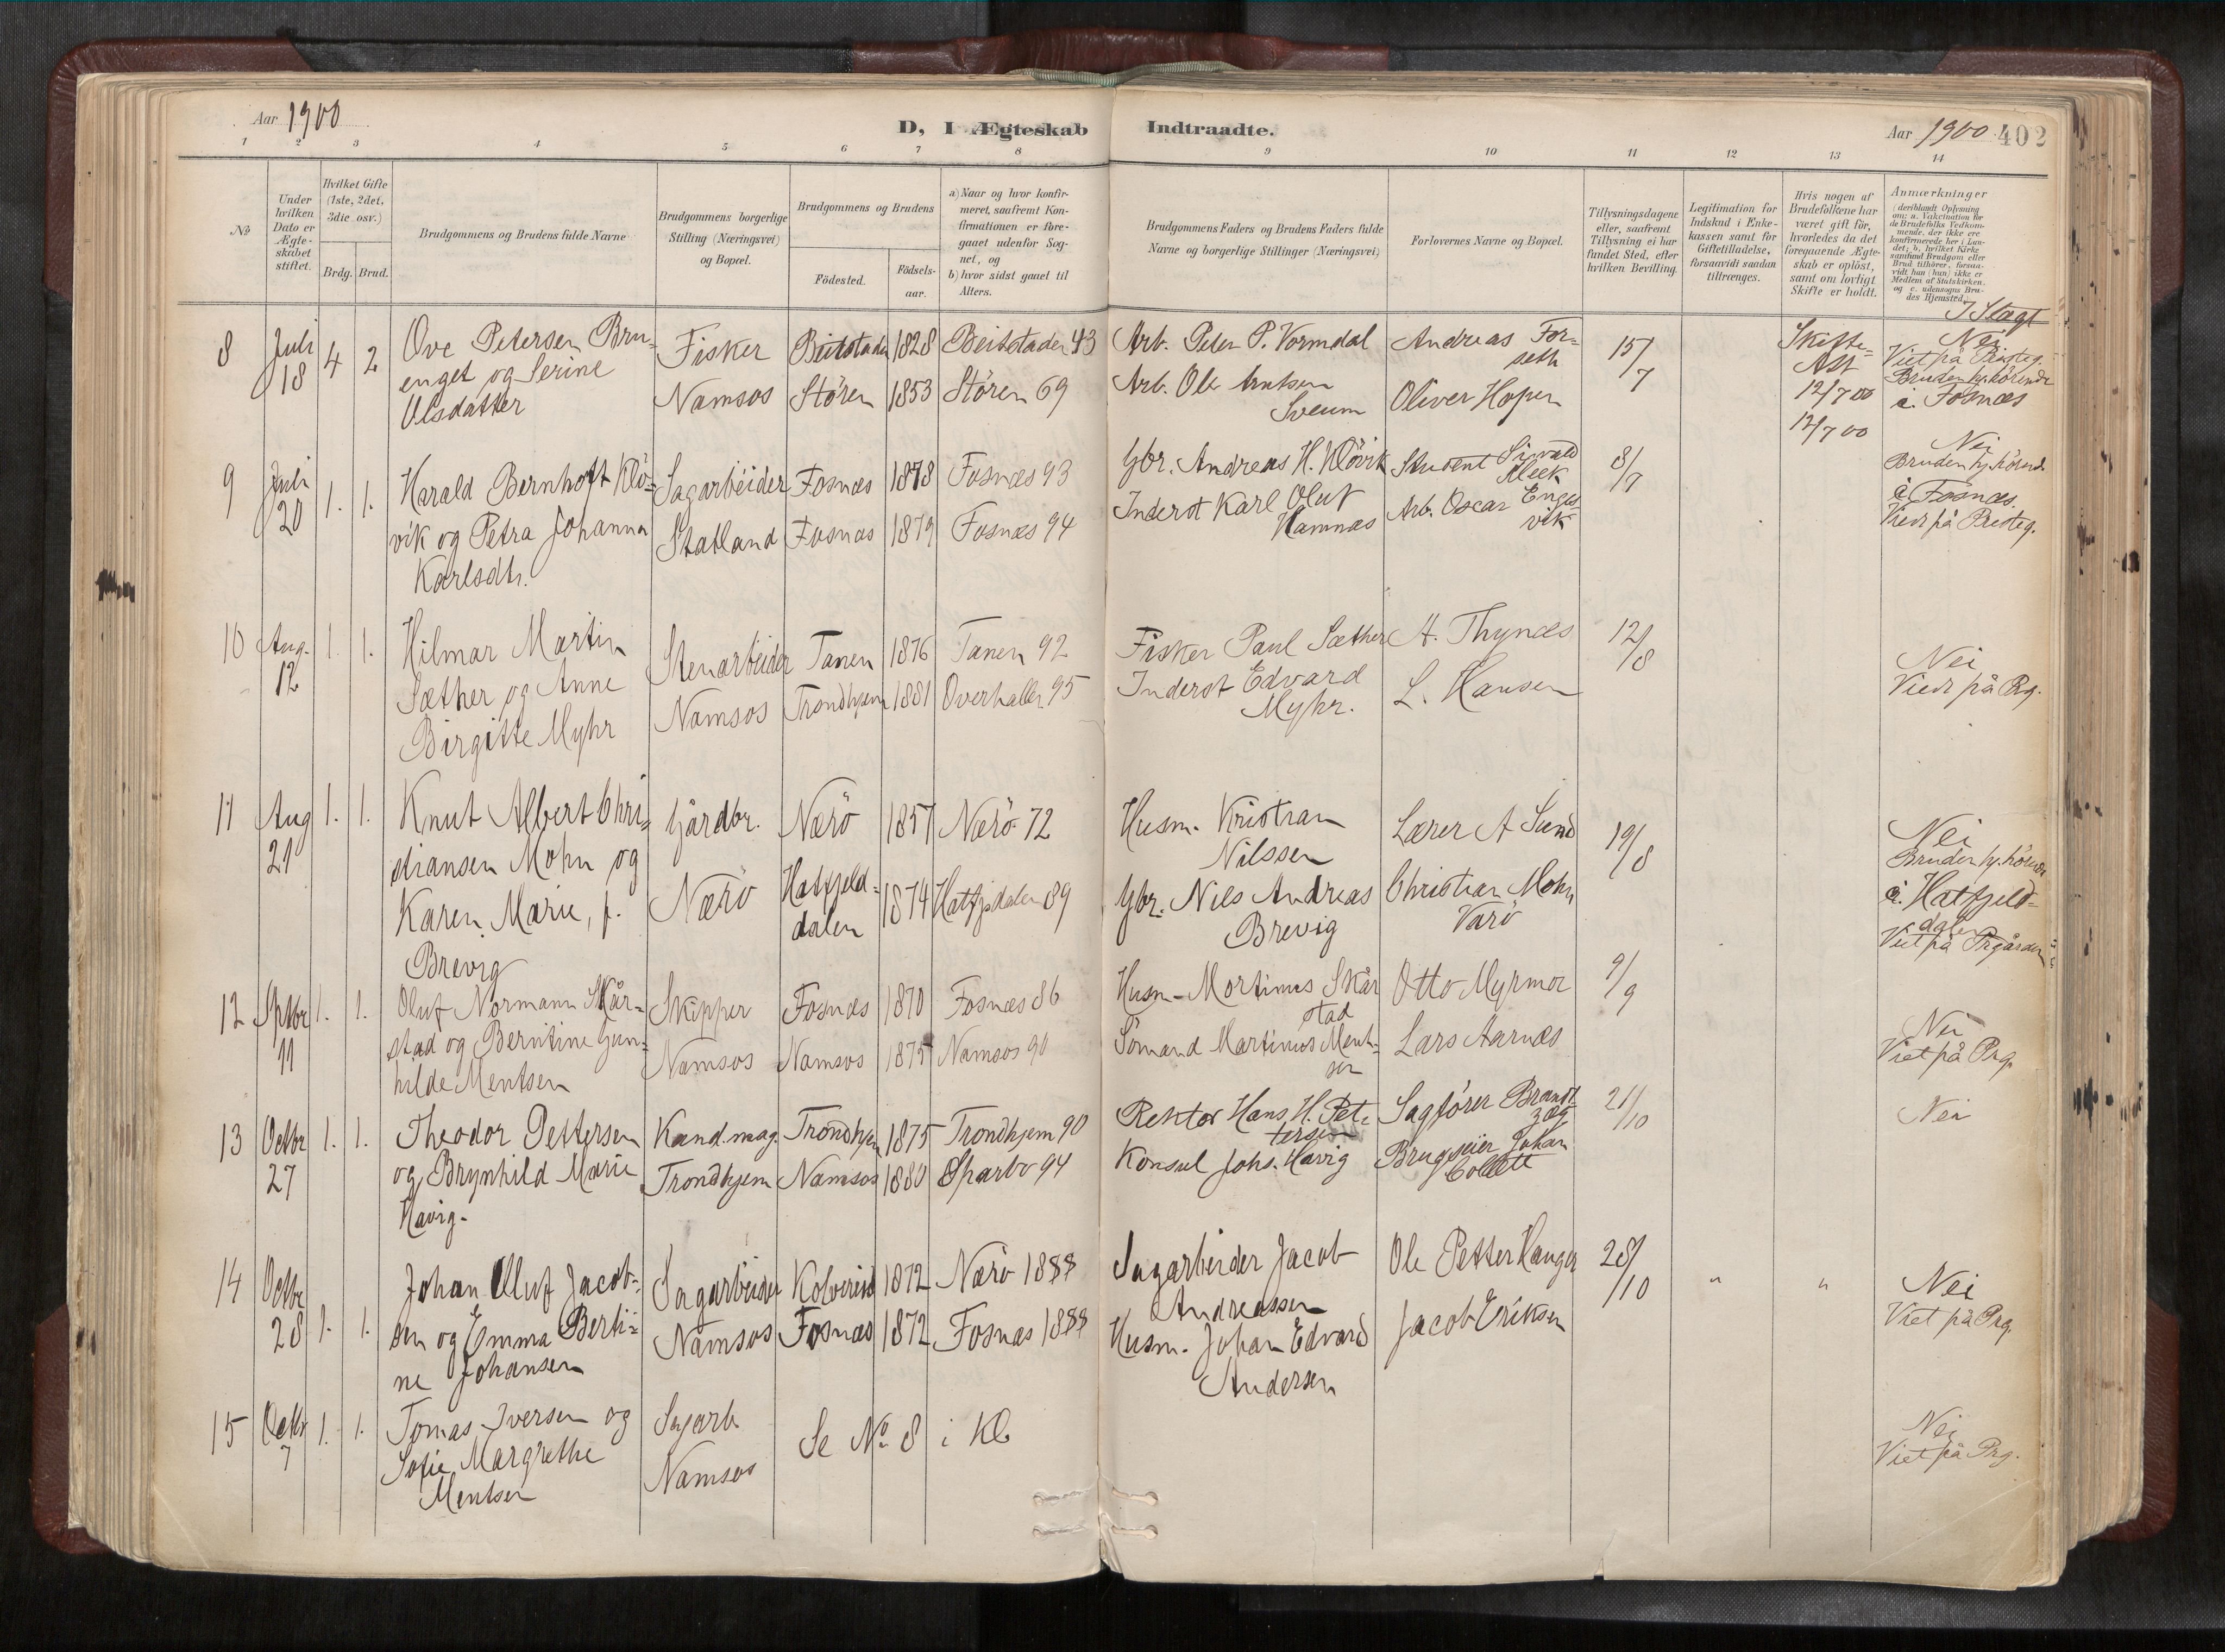 Aar 1900
D, I Ægteskab Indtraadte.
Aar 1900 402
1 2 3 4 5 6 7 8 9 10 11 12 13 14
№
Under
hvilken
Dato er
Ægte-
skabet
stiftet.
Hvilket Gifte
(1ste, 2det,
3die osv.)
Brdg. Brud.
Brudgommens og Brudens fulde Navne
Brudgommens borgerlige
Stilling (Næringsvei)
og Bopæl.
Brudgommens og Brudens
Födested.
Födsels-
aar.
a) Naar og hvor konfir-
meret, saafremt Kon-
firmationen er fore-
gaaet udenfor Sog-
net, og
b) hvor sidst gaaet til
Alters.
Brudgommens Faders og Brudens Faders fulde
Navne og borgerlige Stillinger (Næringsvei)
Forlovernes Navne og Bopæl.
Tillysningsdagene
eller, saafremt
Tillysning ei har
fundet Sted, efter
hvilken Bevilling.
Legitimation for
Indskud i Enke-
kassen samt for
Giftetilladelse,
forsaavidt saadan
tiltrænges.
Hvis nogen af
Brudefolkene har
været gift för,
hvorledes da det
foregaaende Ægte-
skab er oplöst,
samt om lovligt
Skifte er holdt.
Anmærkninger
(deriblandt Oplysning
om: a. Vakcination for
de Brudefolks Vedkom-
mende, der ikke ere
konfirmerede her i Lan-
det; b. hvilket Kirke-
samfund Brudgom eller
Brud tilhörer, forsaa-
vidt han (hun) ikke er
Medlem af Statskirken,
og c. udensogns Bru-
des Hjemsted.)
I Slagt
8 Juli 18 4 2
Ove Petersen Bru-
enget og Serine
Olsdatter
Fisker
Namsos
Beitstaden 1828 Beitstaden 43
Stören 1853 Stören 69
Arb. Peter P. Vormdal
Arb. Ole Arntsen
Sveum
Andreas For-
seth
Oliver Hopen
15/7
Skifte-
Att
12/7 00
12/7 00
Nei
Viet på Presteg.
Bruden hj.hörende
i Fosnæs
9 Juli 20 1. 1.
Harald Bernhoft Klö-
vik og Petra Johanna
Karlsdtr.
Sagarbeider
Statland
Fosnæs 1878 Fosnæs 93
Fosnæs 1879 Fosnæs 94
Gbr. Andreas H. Klövik
Inderst Karl Oluf
Hamnæs
Student Sivald
Bleek
Arb. Oscar Enges-
vik
8/7
Nei
Bruden hj.hörend.
i Fosnæs.
Viedt på Presteg.
10 Aug. 12 1. 1.
Hilmar Martin
Sæther og Anne
Birgitte Myhr
Stenarbeider
Namsos
Tanen 1876 Tanen 92
Trondhjem 1881 Overhallen 95
Fisker Paul Sæther
Inderst Edvard
Myhr.
A. Thynæs
L. Hansen
12/8
Nei
Viedt på Prg.
11 Aug 21 1. 1.
Knut Albert Chri-
stiansen Mohn og
Karen Marie, f.
Brevig
Gårdbr.
Nærö
Nærö 1857 Nærö 72
Hatfjeld-
dalen 1874 Hatfjdalen 89
Husm. Kristian
Nilssen
Gbr. Nils Andreas
Brevig
Lærer A Sund
Christian Mohn
Varö
19/8
Nei
Bruden hj.hörende
i. Hatfjeld-
dalen
Viet på Prgården
12 Sptbr 11 1. 1.
Oluf Normann Skår-
stad og Berntine Gun-
hilde Mentsen
Skipper
Namsos
Fosnæs 1870 Fosnæs 86
Namsos 1875 Namsos 90
Husm- Mortinus Skår
stad
Sömand Martinus Ment-
sen
Otto Myrmo
Lars Aarnæs
9/9
Nei
Viet på Prg.
13 Octbr 27 1. 1.
Theodor Pettersen
og Brynhild Marie
Havig.
Kand. mag.
Trondhjem
Trondhjem 1875 Trondhjem 90
Namsos 1880 Sparbo 94
Rektor Hans H. Pet-
tersen
Konsul Johs. Havig
Sagförer Brandt
zæg
Brugseier Johan
Collett
21/10
Nei
14 Octbr 28 1. 1.
Johan Oluf Jacob-
sen og Emma Berti-
ne Johansen
Sagarbeider
Namsos
Kolvereid 1872 Nærö 1888
Fosnæs 1872 Fosnæs 1888
Sagarbeider Jacob
Andreassen
Husm. Johan Edvard
Andersen
Ole Petter Hauger
Jacob Eriksen
28/10
" "
Nei
Viet på Prg.
15 Octbr 7 1. 1.
Tomas Iversen og
Sofie Margrethe
Mentsen
Sagarb.
Namsos
Se № 8 i Kl
Nei
Viet på Prg.